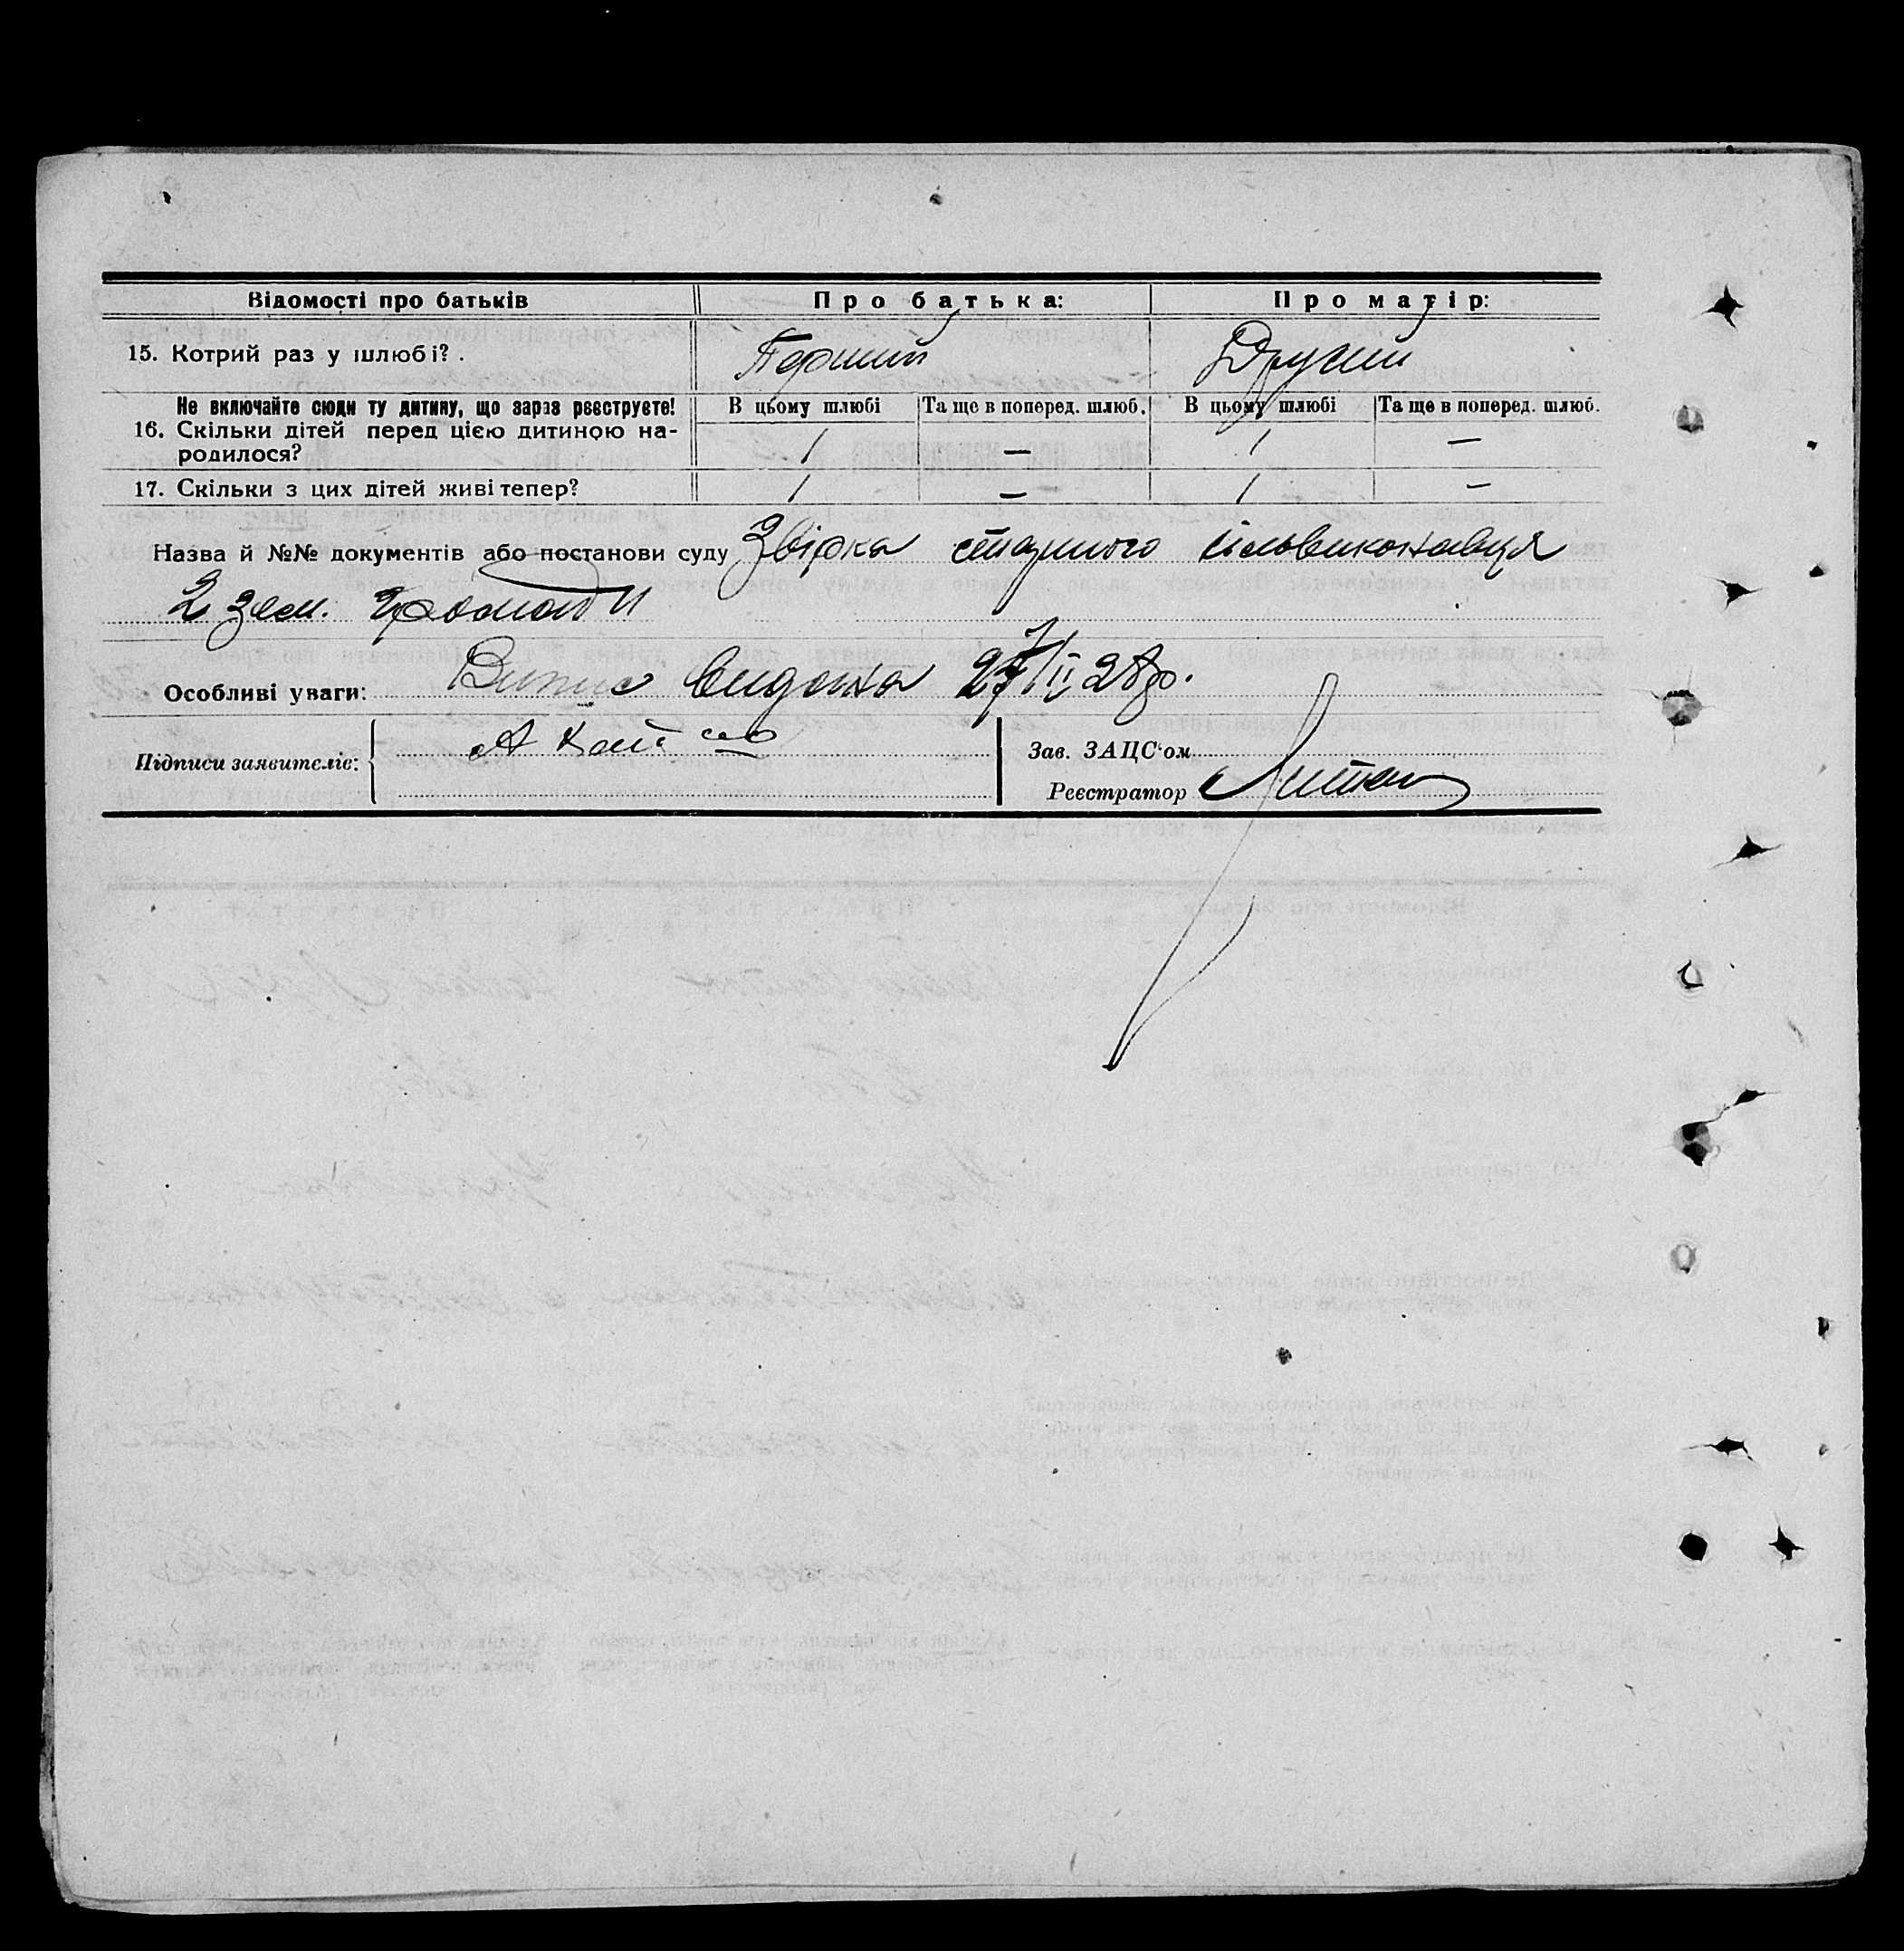 Відомості про батьків Про батька: Про матір:
15. Котрий раз у шлюбі? . Перший Другий
Не включайте сюди ту дитину, що зараз реєструєте! В цьому шлюбі Та ще в поперед. шлюб. В цьому шлюбі Та ще в поперед. шлюб.
16. Скільки дітей перед цією дитиною на-
родилося? 1 — 1 —
17. Скільки з цих дітей живі тепер? 1 — 1 —
Назва й №№ документів або постанови суду Звірка сільвиконавця
2 зем. громади
Особливі уваги: Випис видана 27/II 28 р.
Підписи заявителів:
Зав. ЗАЦС'ом
Реєстратор